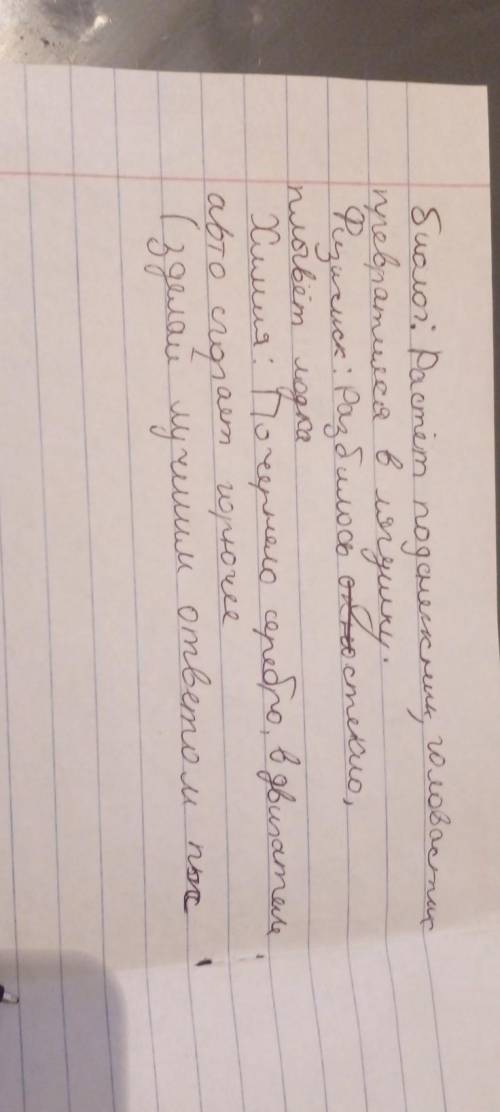 биолог: Растёт подснежник, головастик
превратился в лягушку.
Физичиск: Разбилось стекло,
плывёт лодка
Химия: Почернело серебро, в двигателе
авто сгорает горючее
(зделай лучшим ответом